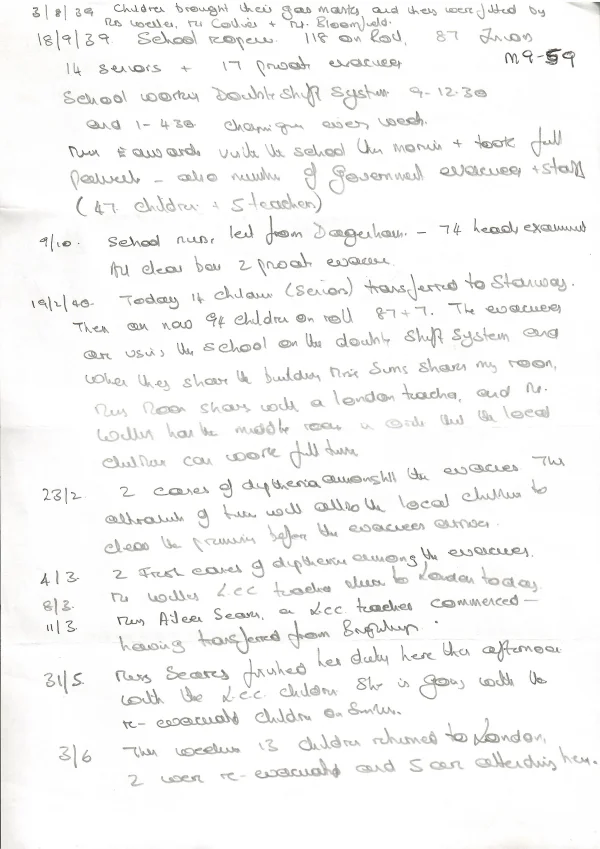 3/8/39 Children brought their gas masks, and they were fitted by
Mr Weller, Mr Collier + Mr. Bloomfield.
18/9/39. School reopen. 118 on Roll, 87 Juniors
14 seniors + 17 private evacuees M9-59
School working Double Shift System 9-12.30
and 1-4 30 changing every week.
Miss Edwards visits the school this morning + took full
particulars - also number of Government evacuees + staff
(47 children + 5 teachers)
9/10. School nurse led from Dagenham - 74 heads examined
All clear bar 2 private evacuees.
19/2/40. Today 14 children (Seniors) transferred to Stanway.
There are now 94 children on roll 87+7. The evacuees
are using the school on the double shift system and
when they share the building Miss Sims shares my room,
Miss Moon shares with a london teacher, and Mr.
Weller has the middle room in order that the local
children can work full time
23/2. 2 cases of diptheria amongst the evacuees This
alteration of time will allow the local children to
clear the premises before the evacuees arrive.
4/3. 2 Fresh cases of diptheria among the evacuees.
8/3. Mr Weller L.C.C teacher return to London today.
11/3 Miss Aileen Sears, a L.C.C teacher commenced -
having transferred from
31/5. Miss Seares finished her duty here this afternoon
with the L.C.C. children She is going with the
re-evacuated children on Sunday.
3/6 This weekend 13 children returned to London,
2 were re-evacuated and 5 are attending here.